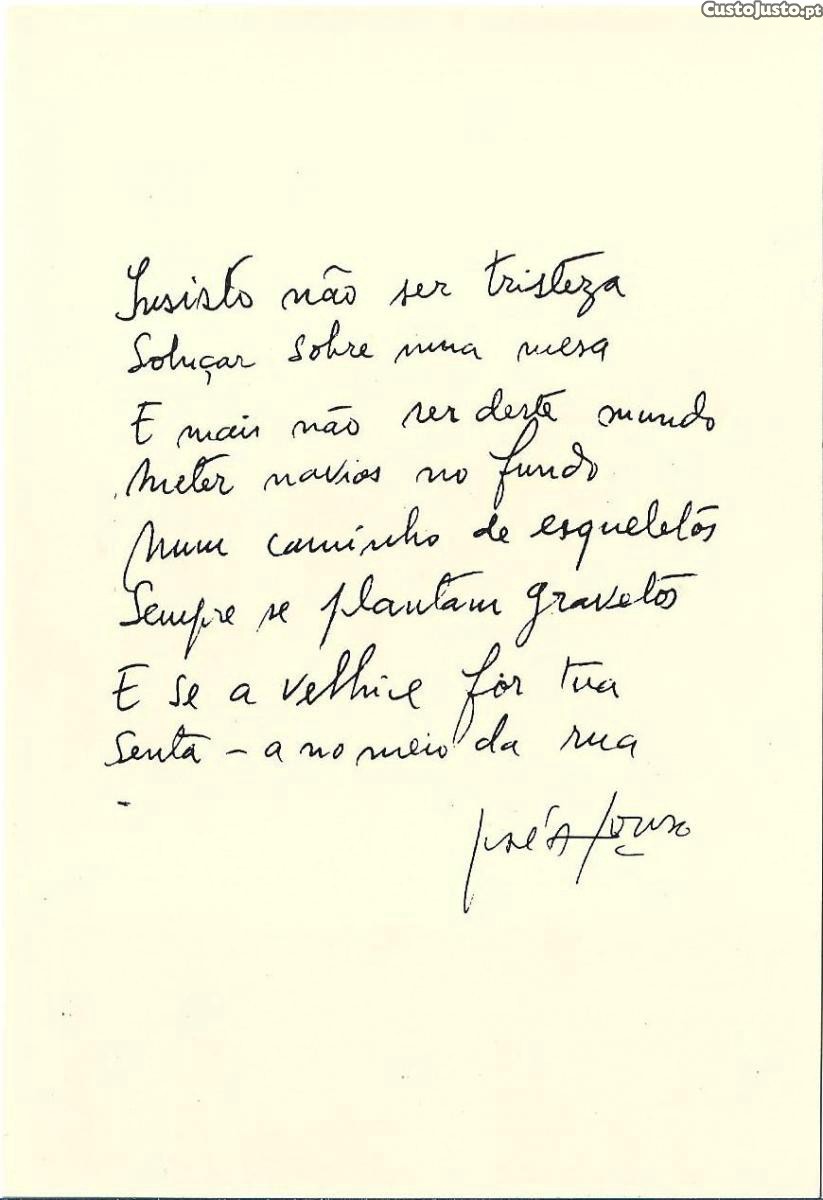 CustoJusto.pt
Insisto não ser tristeza
Soluçar sobre uma mesa
E mais não ser deste mundo
Meter navios no fundo
Num caminho de esqueletos
Sempre se plantam gravetos
E se a velhice for tua
Senta-a no meio da rua
-
José Afonso